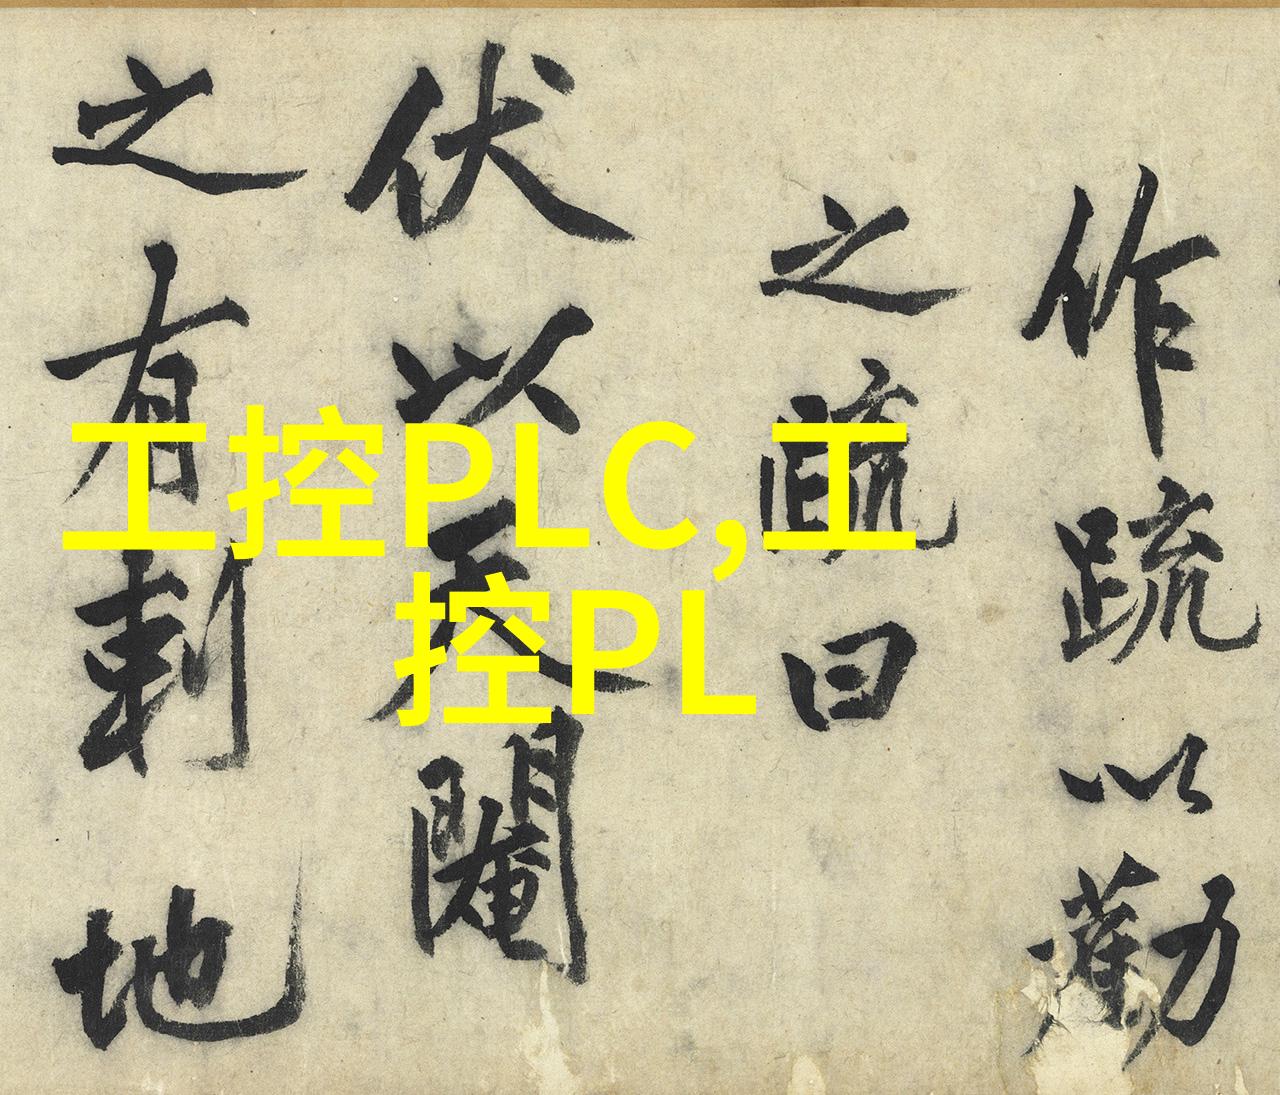 作疏以勸
之疏曰
伏以天閹
之有刺地
工控PLC,工
控PL